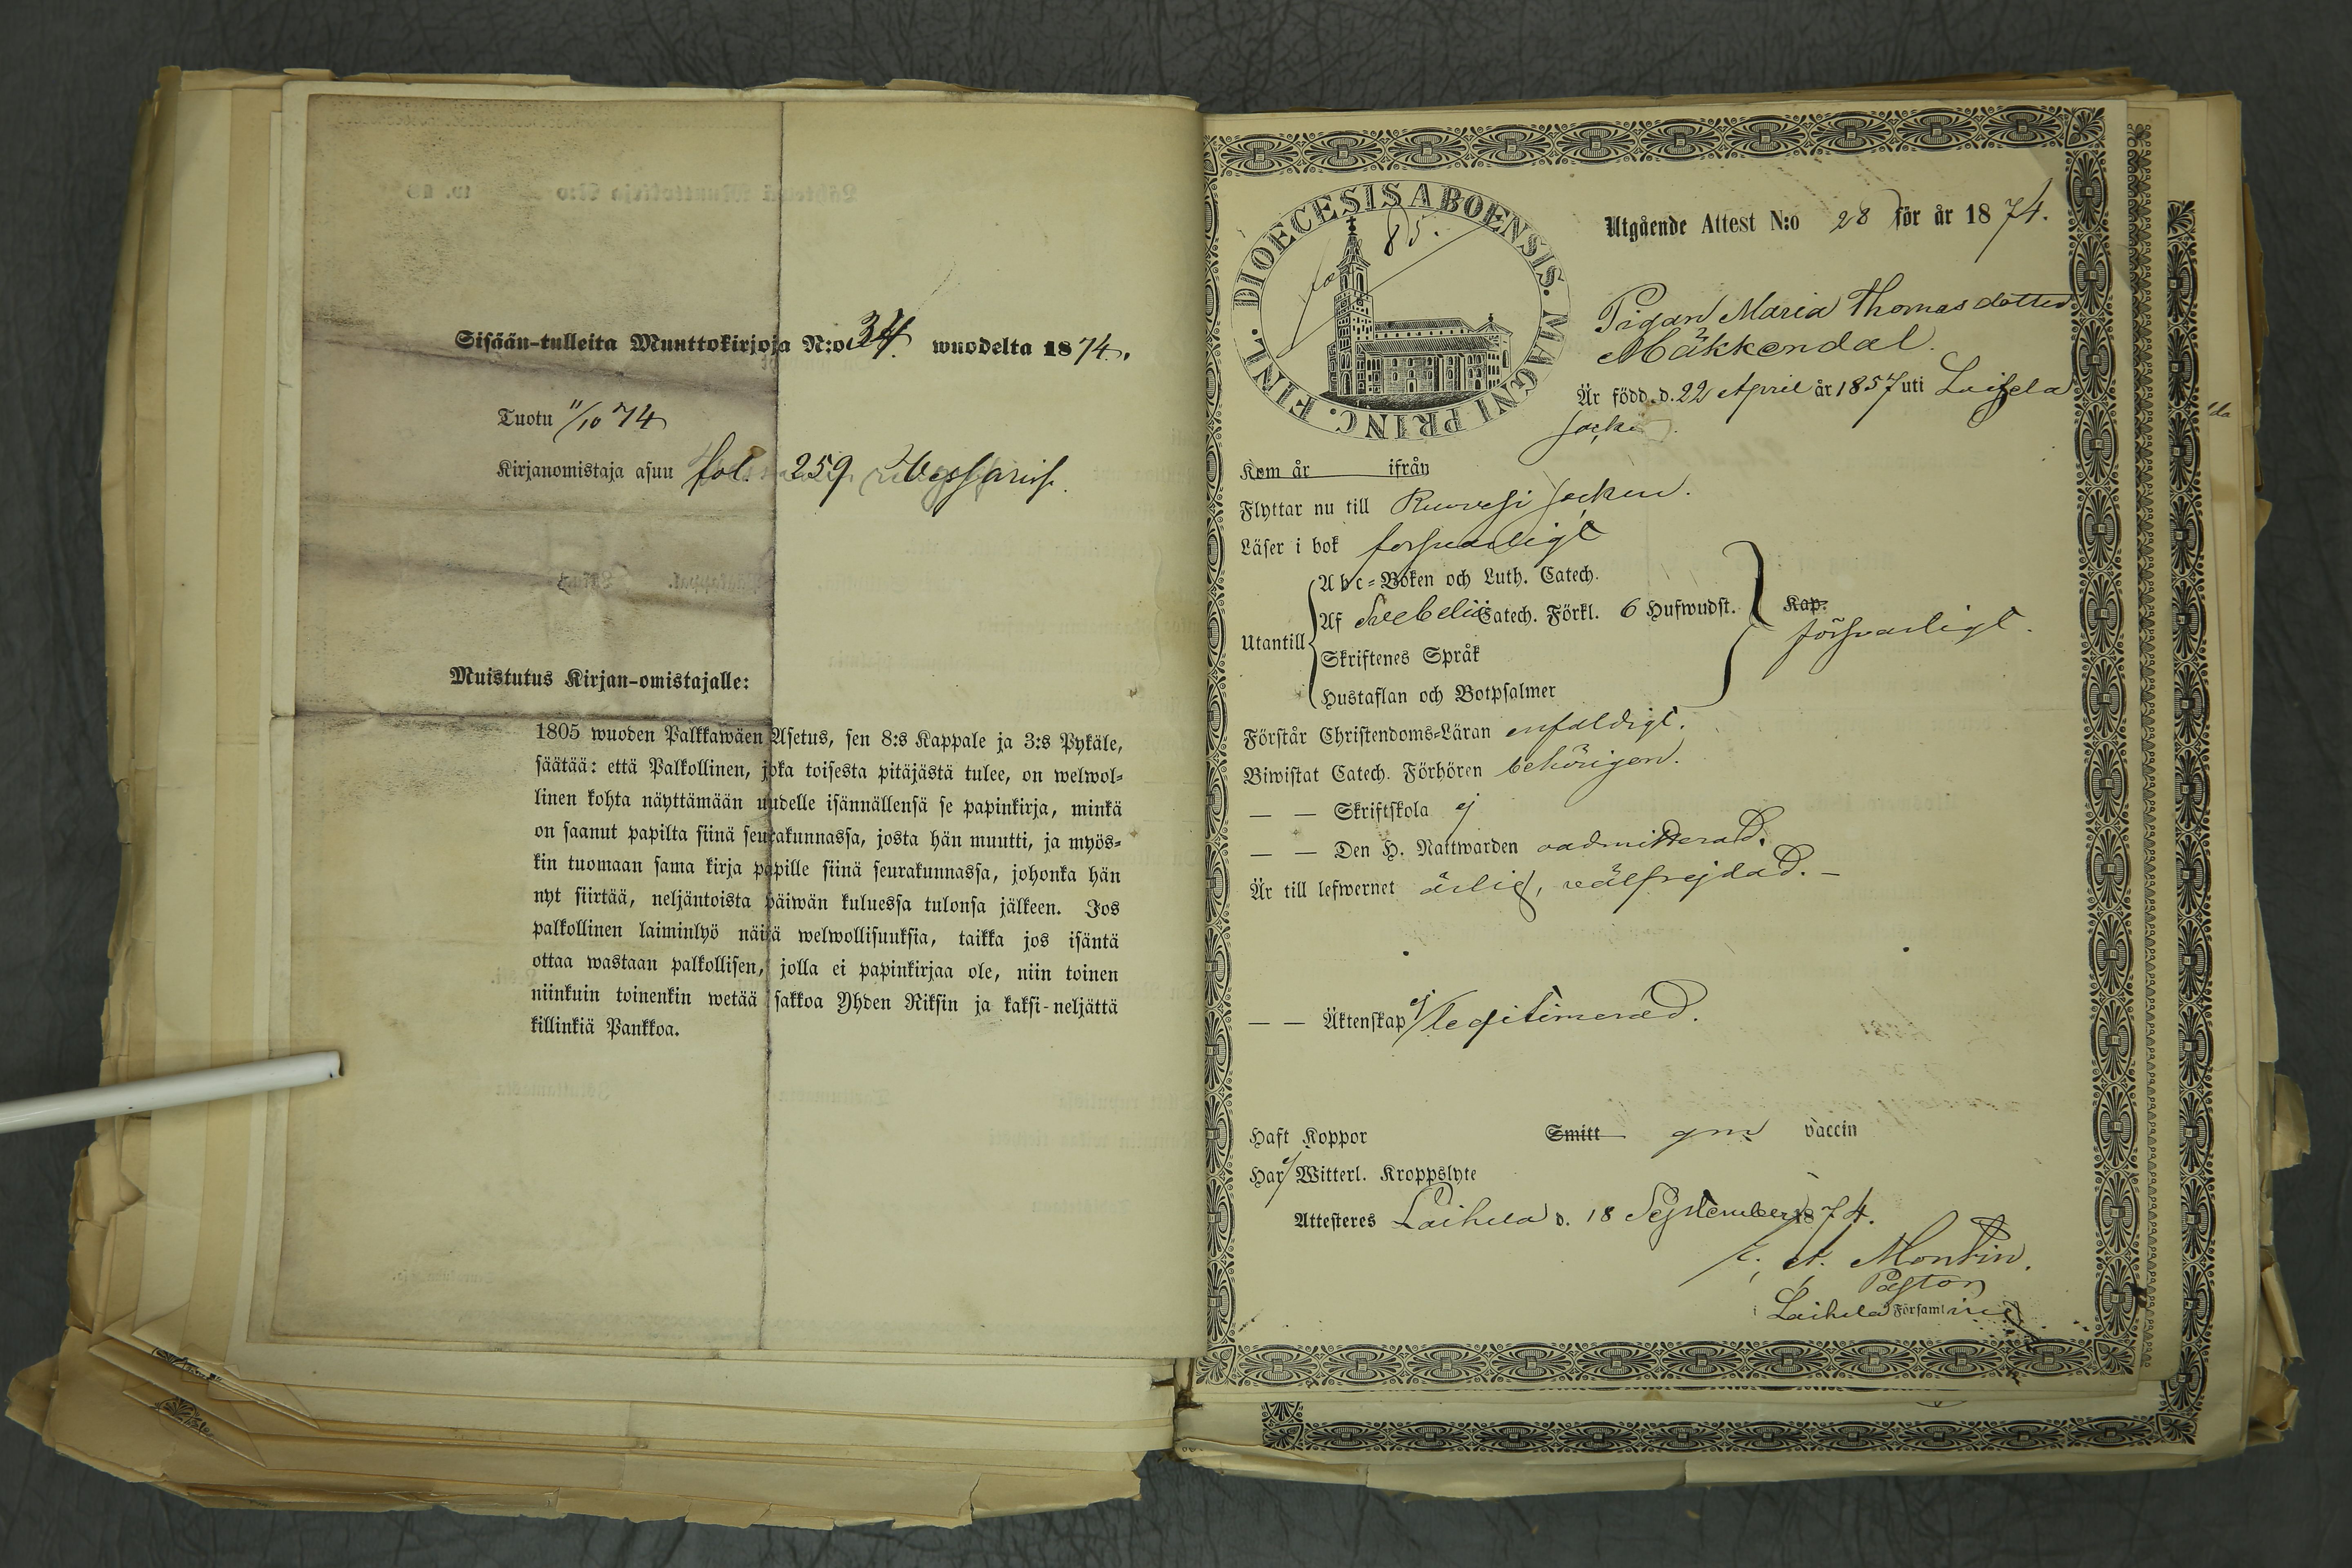 Sisään-tulleita Muuttokirjoja N:o 34 wuodelta 1874.
Tuotu 11/10 74
Kirjanomistaja asuu fol. 259
Muistutus Kirjan-omistajalle:
1805 wuoden Palkkawäen Asetus, sen 8:s Kappale ja 3:s Pykäle,
säätää: että Palkollinen, joka toisesta pitäjästä tulee, on welwol-
linen kohta näyttämään uudelle isännällensä se papinkirja, minkä
on saanut papilta siinä seurakunnassa, josta hän muutti, ja myös-
kin tuomaan sama kirja papille siinä seurakunnassa, johonka hän
nyt siirtää, neljäntoista päiwän kuluessa tulonsa jälkeen. Jos
palkollinen laiminlyö näitä welwollisuuksia, taikka jos isäntä
ottaa wastaan palkollisen, jolla ei papinkirjaa ole, niin toinen
niinkuin toinenkin wetää sakkoa Yhden Riksin ja kaksi-neljättä
killinkiä Pankkoa.
DIOECESIS ABOENSIS. MAGNI PRINC. FINL.
85.
Utgående Attest N:o 28 för år 1874.
Pigan Maria Thomasdotter
Mäkkendal.
Är född. d. 22 April år 1857 uti Laihela
socken.
Kom år ifrån
Flyttar nu till Ruovesi socken.
Läser i bok försvarligt
Utantill
Abc-Boken och Luth. Catech.
Af Svebelii Catech. Förkl. 6 Hufwudst.
Skriftenes Språk
Hustaflan och Botpsalmer
Kap.
försvarligt.
Förstår Christendoms-Läran enfaldigt.
Biwistat Catech. Förhören behörigen.
— — Skriftskola ej
— — Den H. Nattwarden oadmitterad.
Är till lefwernet ärlig, välfrejdad. —
— — Äktenskap ej legitimerad.
Haft Koppor Smitt gm vaccin
Har ej Witterl. Kroppslyte
Attesteres Laihela d. 18 September 1874.
Pastor
i Laihela Församling